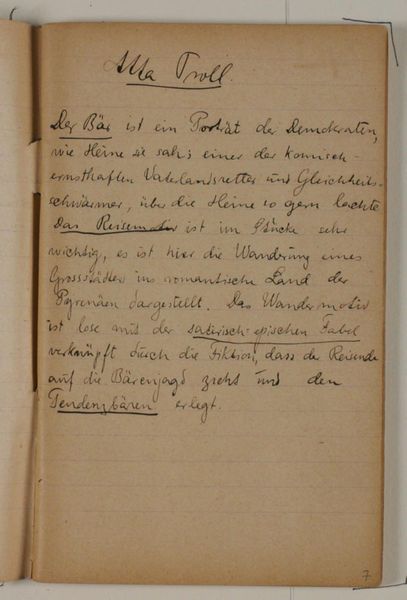 Atta Troll.
Der Bär ist ein Porträt der Demokraten,
wie Heine sie sah: einer der komisch-
ernsthaften Vaterlandsretter und Gleichheits-
schwärmer, über die Heine so gern lachte
Das Reisemotiv ist im Stücke sehr
wichtig, es ist hier die Wanderung eines
Grossstädter ins romantische Land der
Pyrenäen dargestellt. Das Wandermotiv
ist lose mit der satirisch-epischen Fabel
verknüpft durch die Fiktion, dass der Reisende
auf die Bärenjagd zieht und den
Tendenzbären erlegt.
7